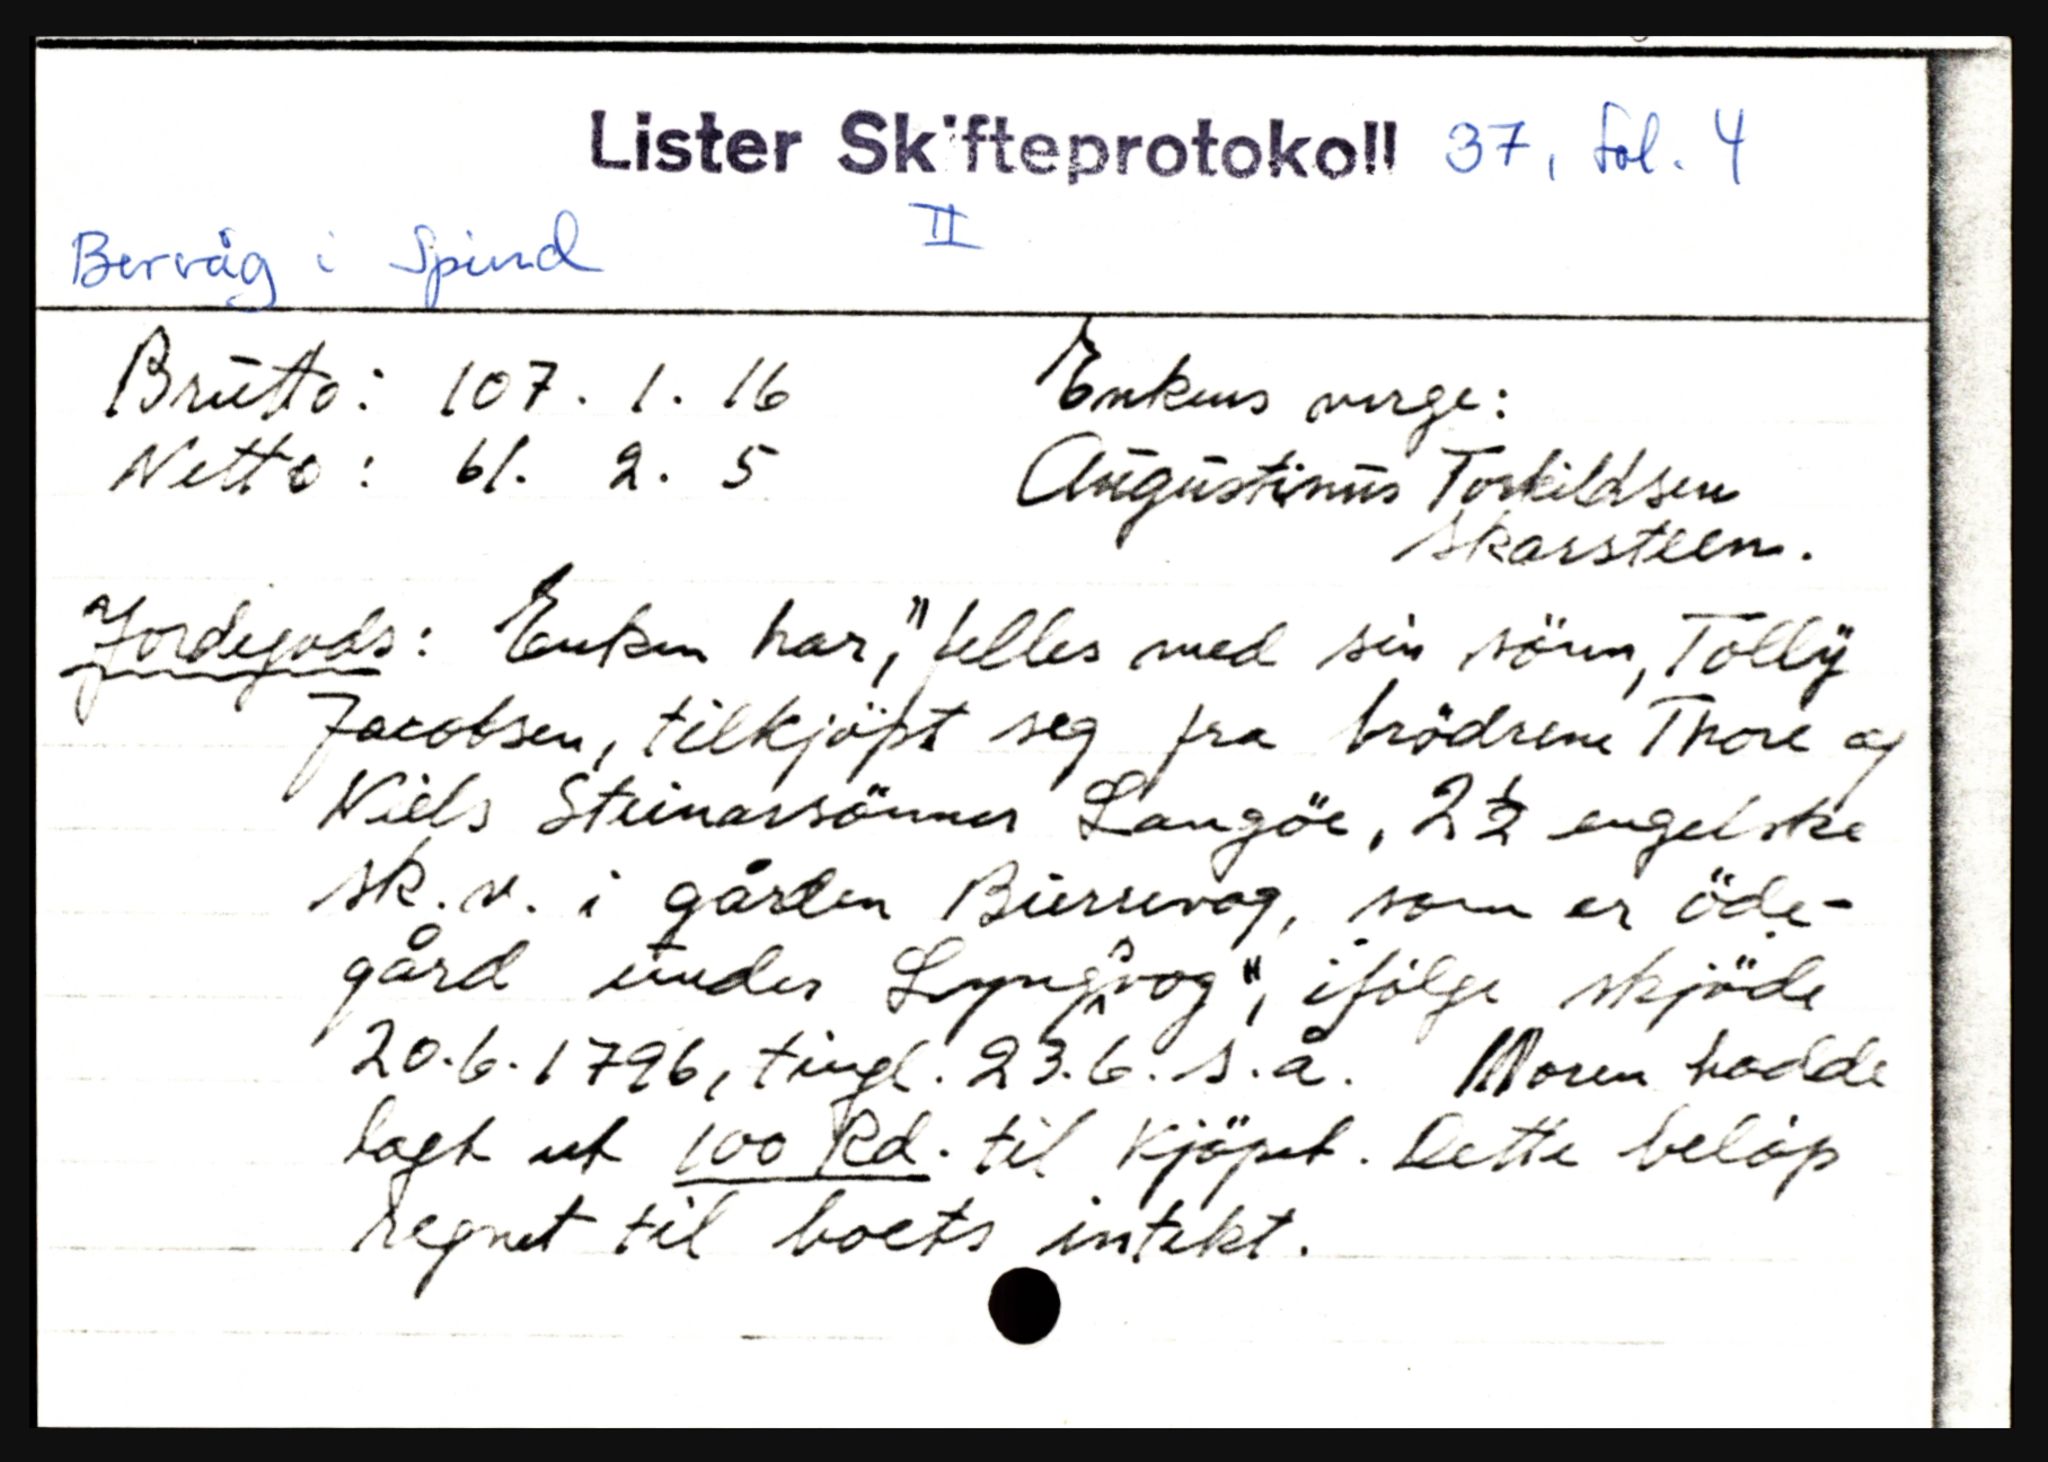 Lister Skifteprotokoll 37, fol. 4
II
Bervåg i Spind
Brutto: 107. 1. 16
Netto: 61. 2. 5
Enkens verge:
Augustinus Torkildsen
Skarsteen.
Jordegods: Enken har, "felles med sin sönn, Tollÿ
Jacobsen, tilkjöpt seg fra brödrene Thore og
Niels Steinarsönner Langöe, 2 1/2 engelske
sk. v. i gården Bierrevog, som er öde-
gård under Lyngsvog", ifölge skjöde
20.6.1796, tingl. 23.6. s.å. Moren hadde
lagt ut 100 Rd. til kjöpet. Dette beløp
regnet til boets intekt.